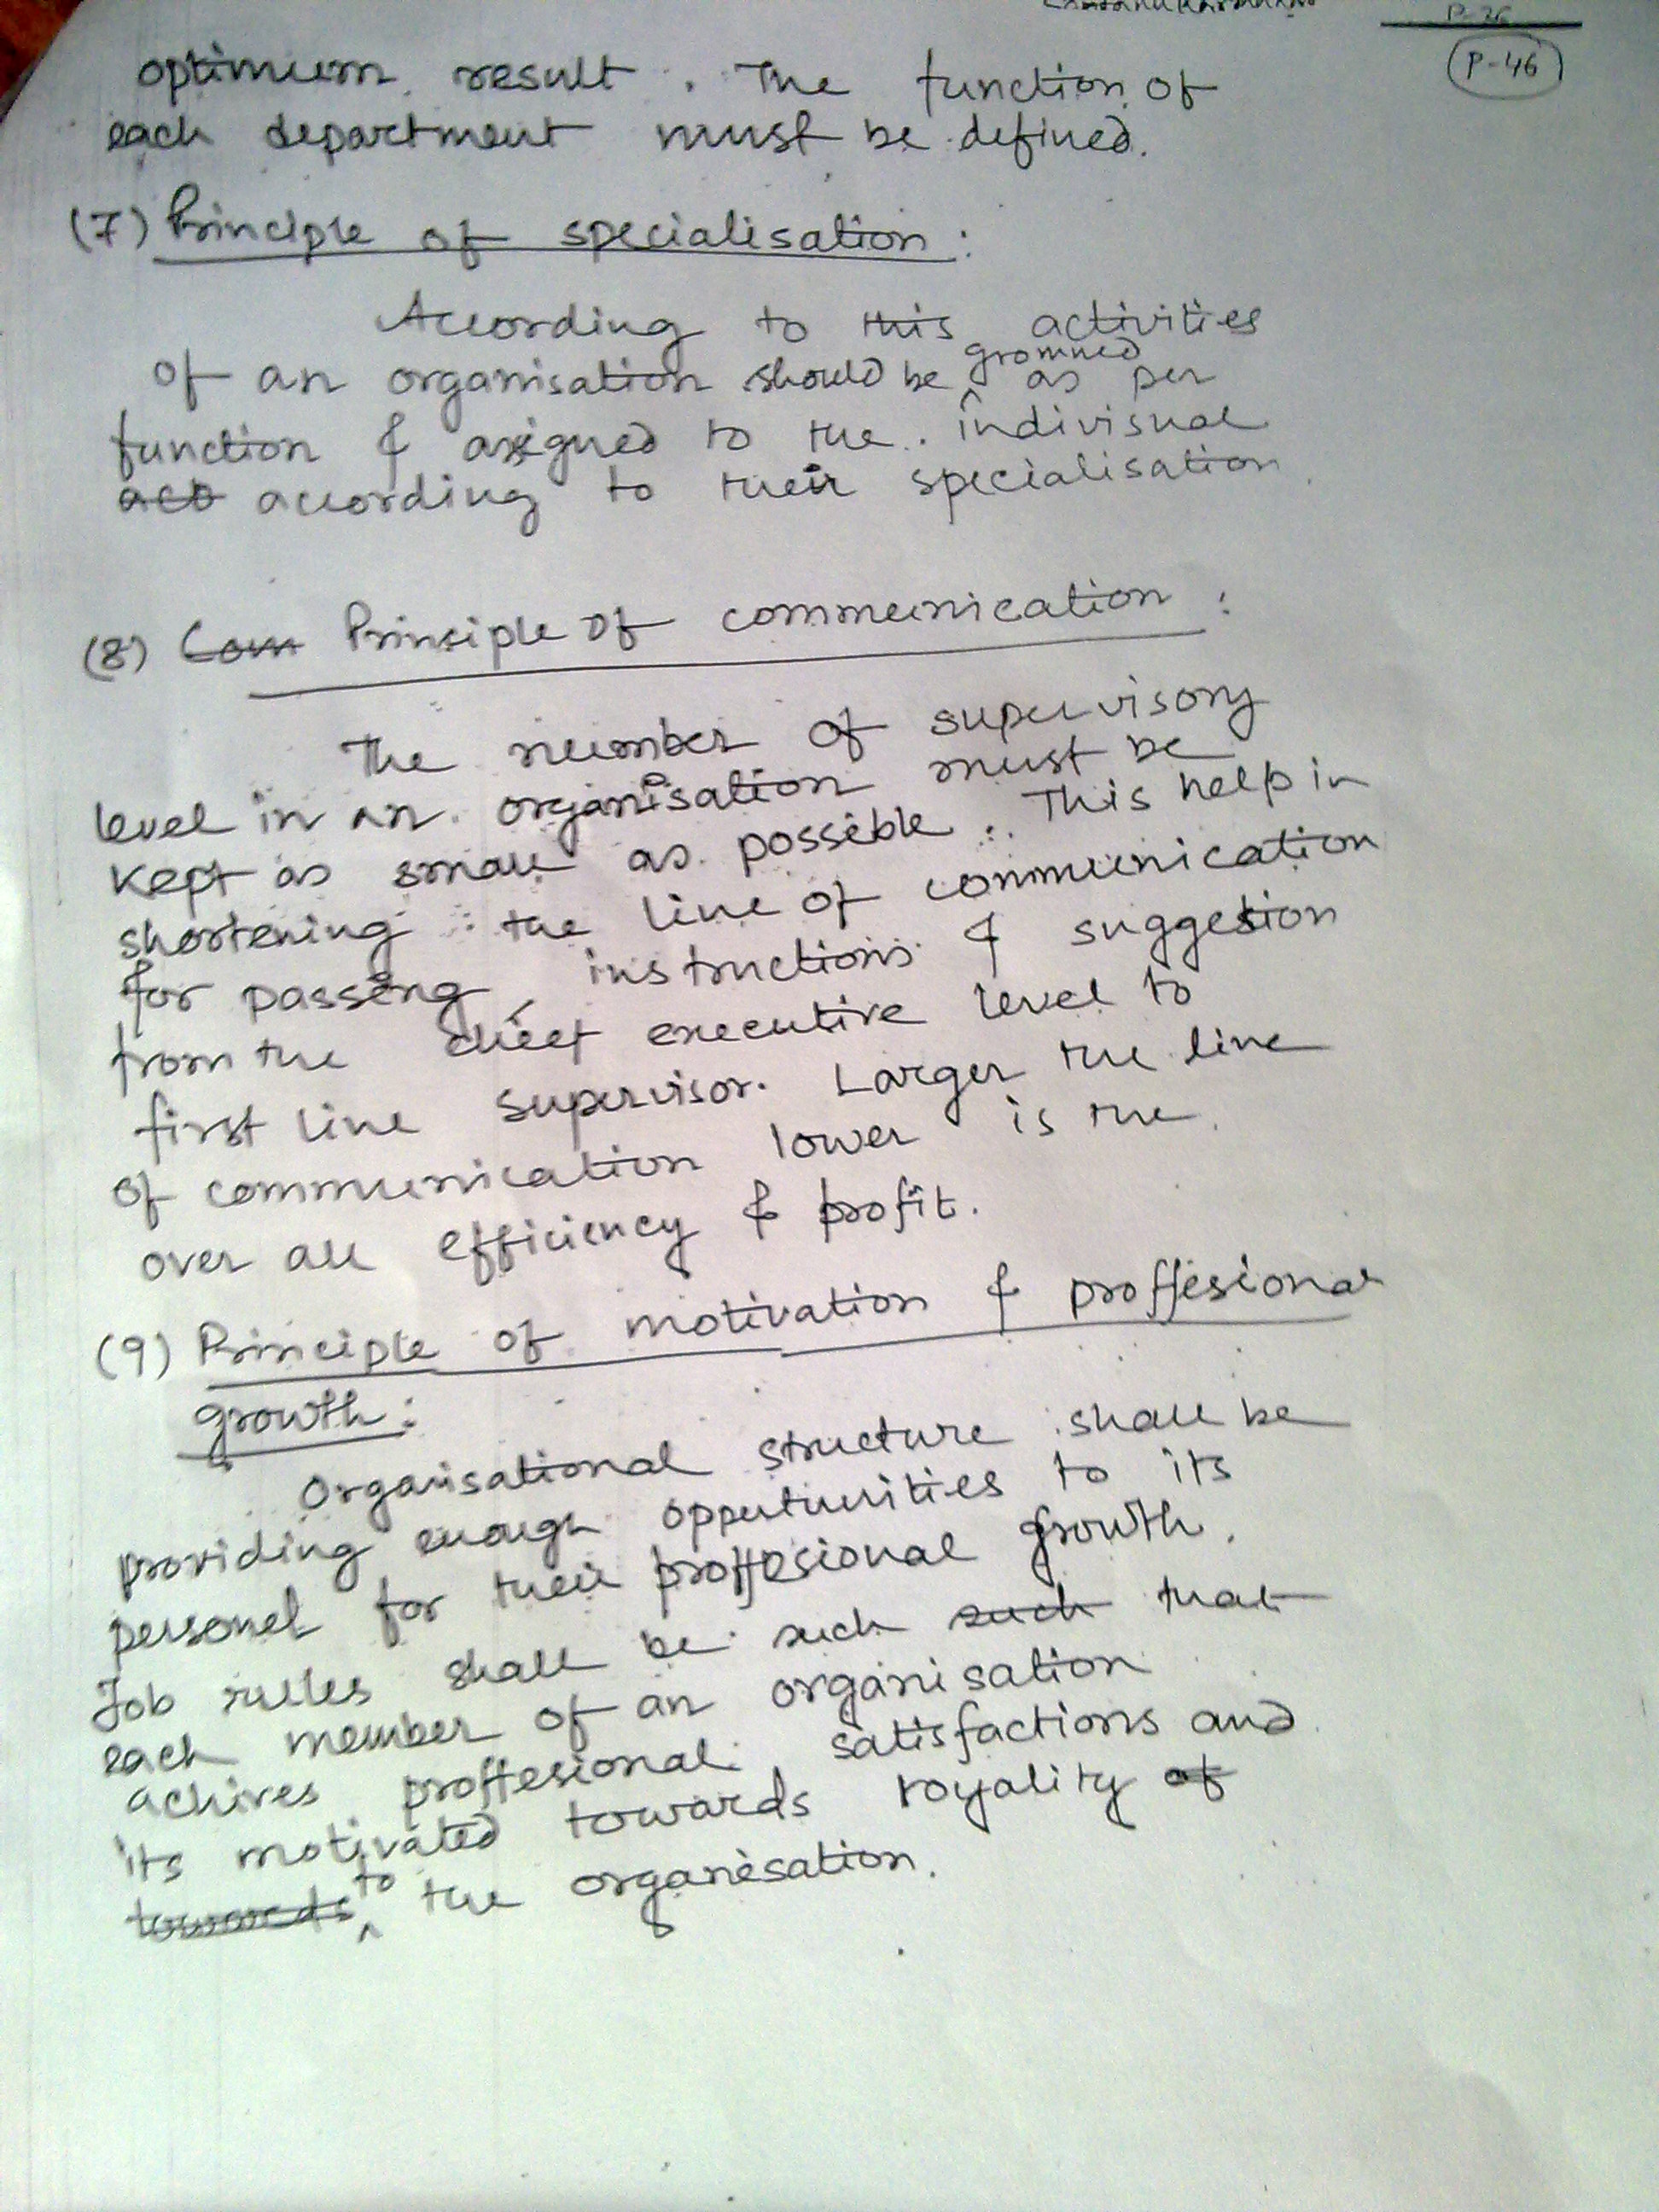 P-26
P-46
optimum result. The function of
each department must be defined.
(7) Principle of specialisation :
According to this activities
of an organisation should be groumned as per
function & assigned to the indivisual
aco according to their specialisation
(8) Com Principle of communication :
The number of supervisory
level in an organisation must be
kept as small as possible. This help in
shortening the line of communication
for passing, instructions & suggestion
from the chief executive level to
first line supervisor. Larger the line
of communication lower is the
over all efficiency & profit.
(9) Principle of motivation & proffesional
growth :
Organisational structure shall be
providing enough oppurtunities to its
personel for their proffesional growth.
Job rules shall be such such that
each member of an organisation
achives proffesional satisfactions and
its motivated towards royality of
towards to the organisation.